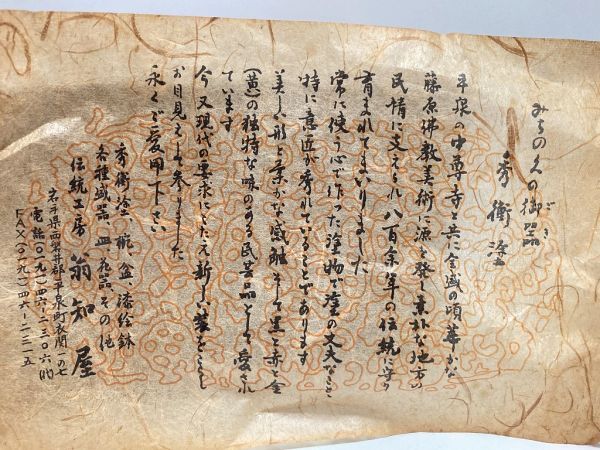 みちのくの御器
ごき
秀衡塗
平泉の中尊寺と共に全盛の頃華かな
藤原佛教美術に源を発し素朴な地方の
民情に支えられ八百余年の伝統に守り
育まれてまいりました
常に使う心で作った塗物で塗の丈夫なこと
特に意匠が秀れていることであります
美しい形と素朴な感触 そして黒と赤と金
(黄)の独特な味のある民芸品として愛され
ています
今又現代の要求にこたえ新しい装をこらし
お目見えして参りました
永くご愛用下さい
秀衡塗 椀、盆、漆絵鉢
各種盛器、皿、花器その他
伝統工房 翁知屋
岩手県西磐井郡平泉町衣関一の七
電話(〇一九一)四六-二三〇六
FAX(〇一九一)四六-二三一五